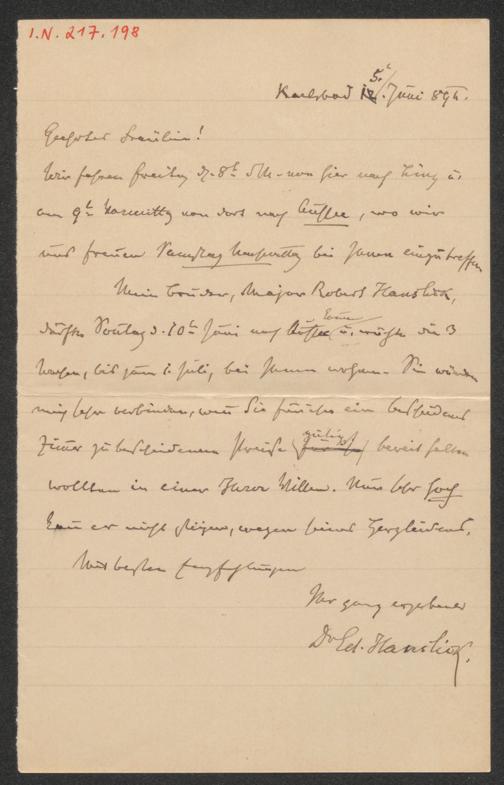 I.N. 217.198
Karlsbad 5./ Juni 894.
Geehrtes Fräulein!
Wir fahren Freitag d. 8t d. M. von hier nach Linz u.
am 9t Vormittag von dort nach Aussee, wo wir
uns freuen Samstag Nachmittag bei Ihnen einzutreffen
Mein Bruder, Major Robert Hanslick,
dürfte Sontag d. 10t Juni nach Aussee kom̄en u. möchte die 3
Wochen, bis zum 1. Juli, bei Ihnen wohnen. Sie würden
mich sehr verbinden, wenn Sie für ihn ein bescheidenes
Zim̄er zu bescheidenem Preise gütigst bereit halten
wollten in einer Ihrer Villen. Nur sehr hoch
kan̄ er nicht steigen, wegen seines Herzleidens.
Mit besten Empfehlungen
Ihr ganz ergebener
Dr Ed. Hanslick.